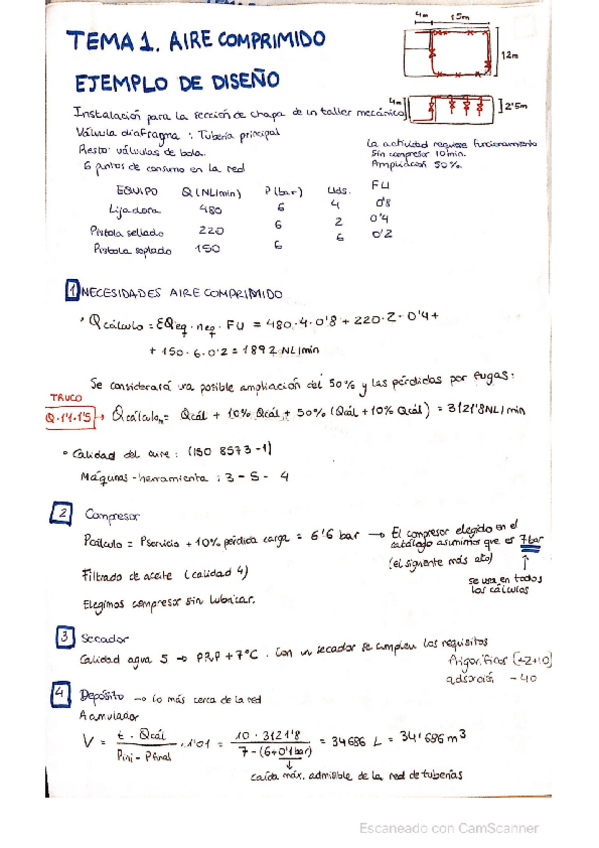 4m 15m
TEMA 1. AIRE COMPRIMIDO
12m
EJEMPLO DE DISEÑO
4m 2'5m
Instalación para la sección de chapa de un taller mecánico
Válvula diafragma : Tubería principal
Resto: válvulas de bola.
6 puntos de consumo en la red
La actividad requiere funcionamiento
Sin compresor 10 min.
Ampliación 50%.
EQUIPO Q (NL/min) P (bar) Uds. FU
Lijadora 480 6 4 0'8
Pistola sellado 220 6 2 0'4
Pistola soplado 150 6 6 0'2
1 NECESIDADES AIRE COMPRIMIDO
· Qcálculo = ΣQeq · neq · FU = 480·4·0'8 + 220·2·0'4 +
+ 150·6·0'2 = 1892 NL/min
Se considerará una posible ampliación del 50% y las pérdidas por fugas:
TRUCO
Q·1'1·1'5 → Qcálculo = Qcál + 10% Qcál + 50% (Qcál + 10% Qcál) = 3121'8 NL/min
· Calidad del aire: (ISO 8573-1)
Máquinas-herramienta : 3 - 5 - 4
2 Compresor
Pcálculo = Pservicio + 10% pérdida carga = 6'6 bar → El compresor elegido en el
catálogo asumimos que es 7bar
(el siguiente más alto)
se usa en todos
los cálculos
Filtrado de aceite (calidad 4)
Elegimos compresor sin lubricar.
3 Secador
Calidad agua 5 → PRP + 7°C. Con un secador se cumplen los requisitos
Frigoríficos (+2+10)
adsorción -40
4 Depósito → lo más cerca de la red
Acumulador
V = t · Qcál / Pini - Pfinal · 1'01 = 10 · 3121'8 / 7 - (6+0'1bar) = 34686 L = 34'686 m³
caída máx. admisible de la red de tuberías
Escaneado con CamScanner